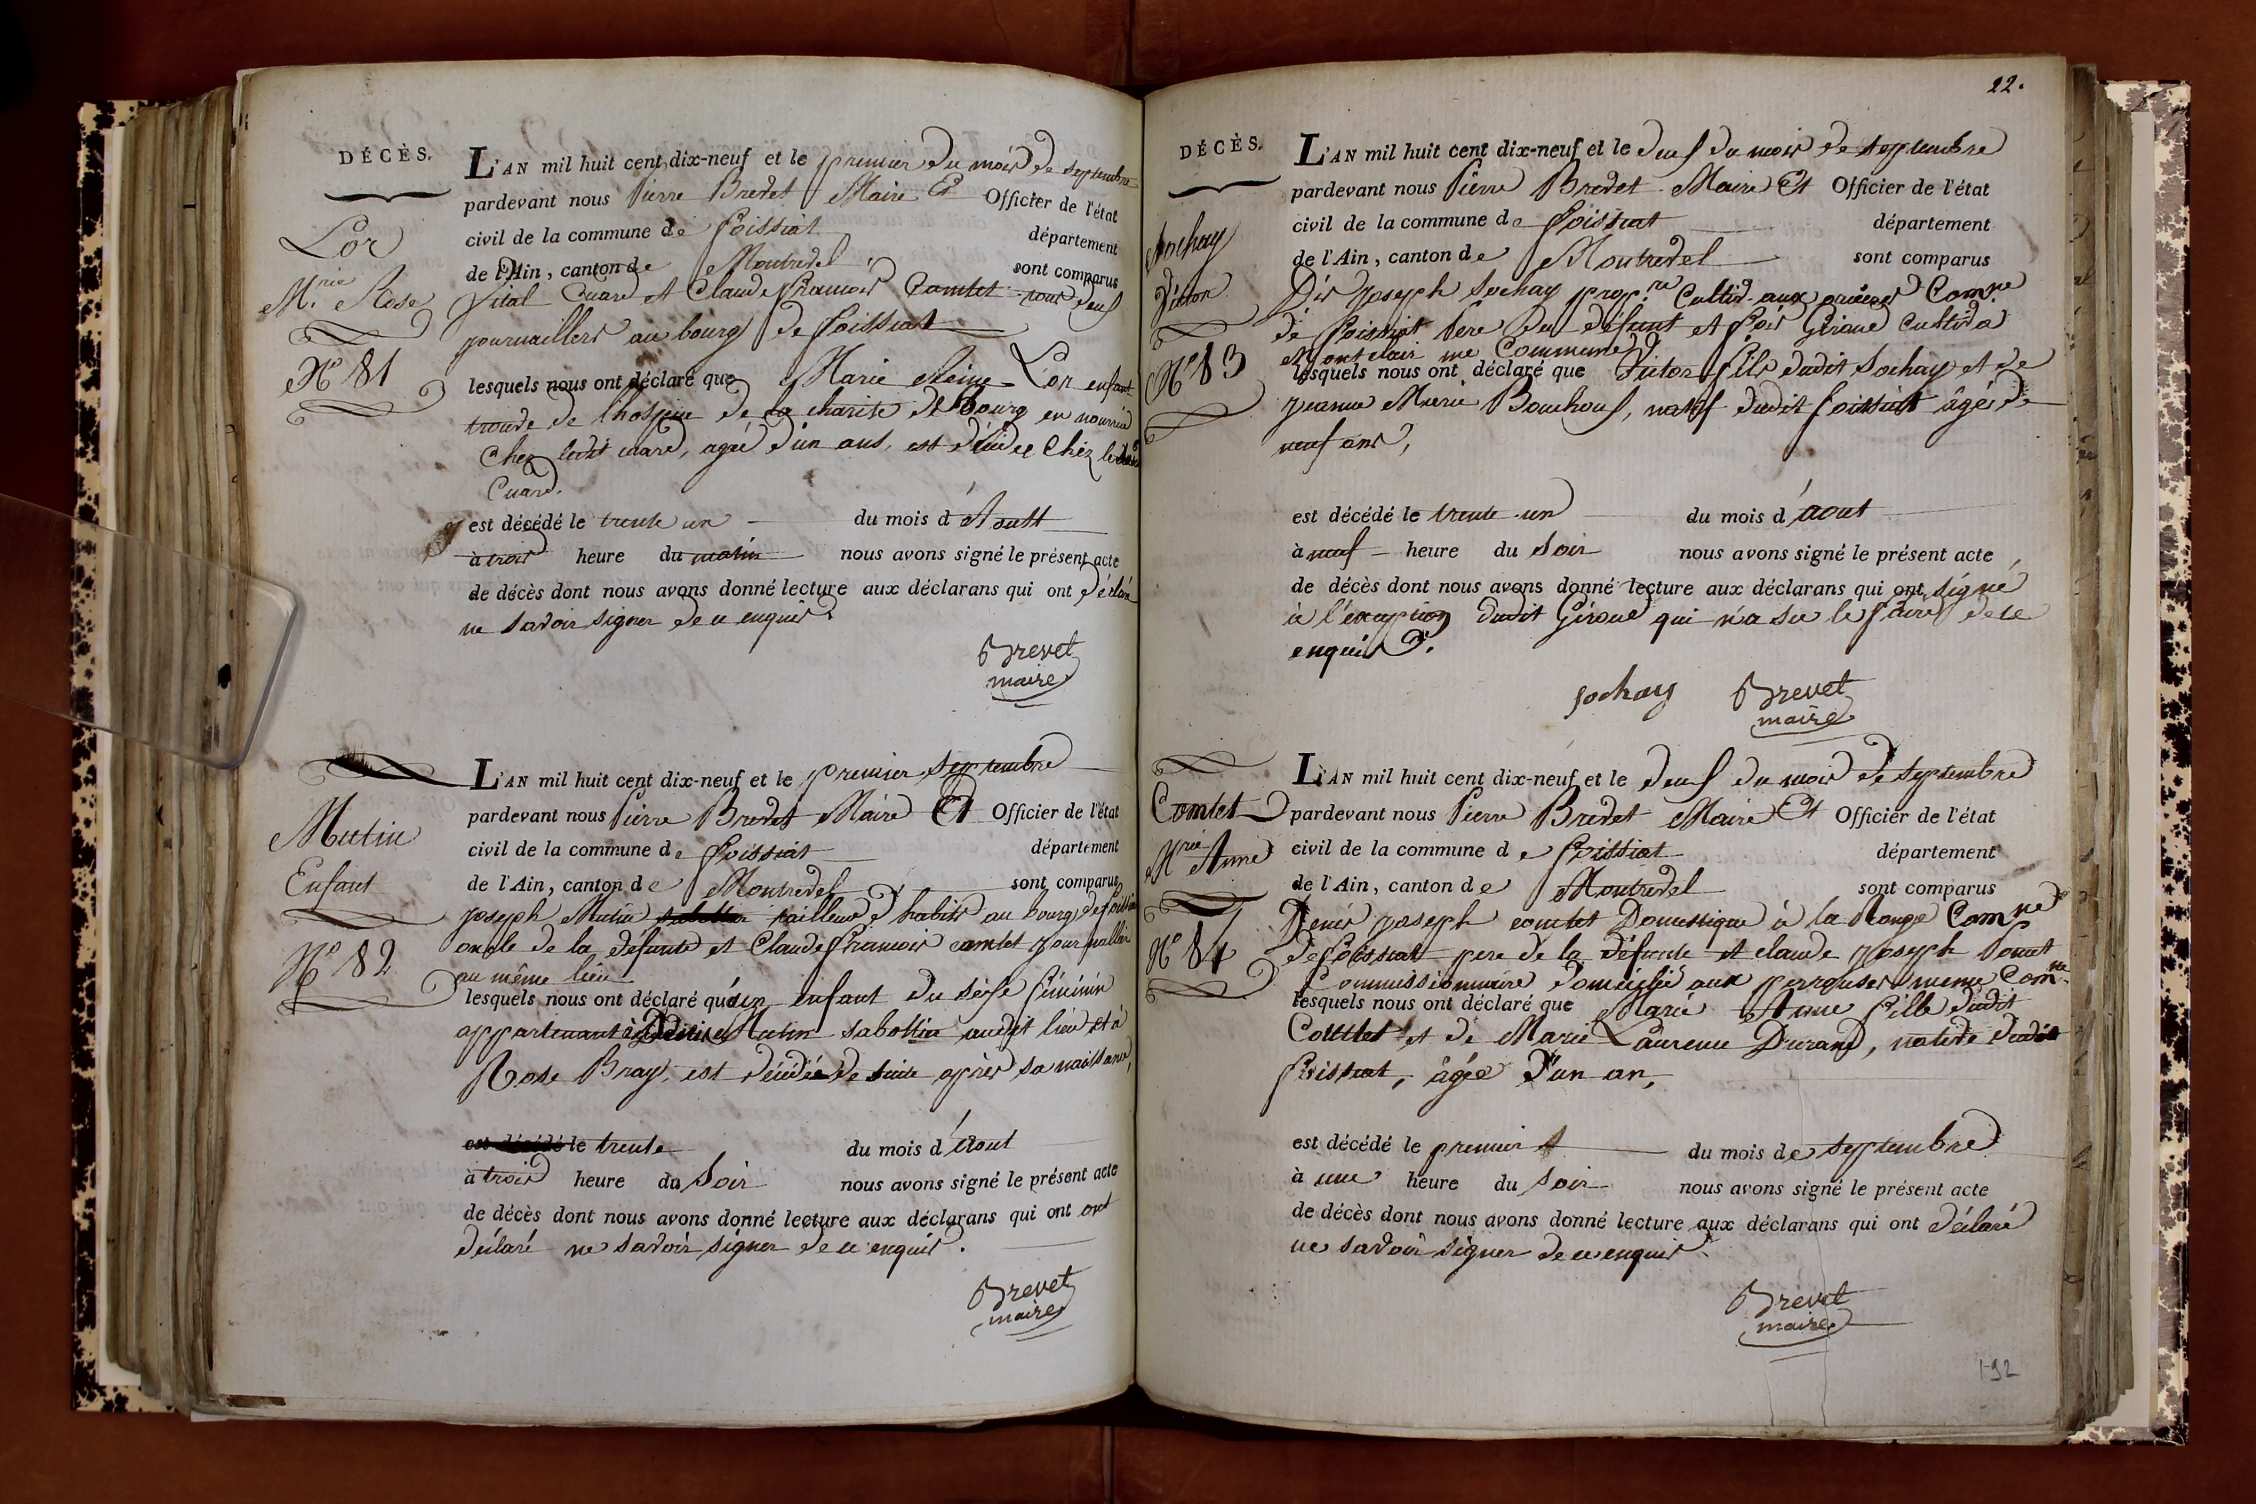 DÉCÈS.
Lor
M.rie Rose
N° 81
L'AN mil huit cent dix-neuf et le premier du mois de septembre
pardevant nous Pierre Brevet Maire Et Officier de l'état
civil de la commune de Foissiat département
de l'Ain, canton de Montrevel sont comparus
Vital Cuard et Claude François Comtet tous deux
journailliers au bourg de Foissiat
lesquels nous ont déclaré que Marie Reine Lor enfant
trouvé de l'hospice de la charité de Bourg en nourrice
Chez ledit cuard, agée d'un ans, est décidée Chez ledit
Cuard.
est décédé le trente un du mois d'Aoutt
à trois heure du matin nous avons signé le présent acte
de décès dont nous avons donné lecture aux déclarans qui ont déclaré
ne savoir signer de ce enquis.
Brevet
maire
Mutin
Enfant
N° 82
L'AN mil huit cent dix-neuf et le premier septembre
pardevant nous Pierre Brevet Maire Et Officier de l'état
civil de la commune de Foissiat département
de l'Ain, canton de Montrevel sont comparus
joseph Mutin tailleur d'habits au bourg de Foissiat
oncle de la défunte et Claude François comtet journallier
au même lieu
lesquels nous ont déclaré qu'un enfant du sexe féminin
appartenant à Denis Mutin sabottier audit lieu et à
Rose Bray, est décédée de suite après sa naissance,
est décédé le trente du mois d'Aout
à trois heure du Soir nous avons signé le présent acte
de décès dont nous avons donné lecture aux déclarans qui ont ont
déclaré ne savoir signer de ce enquis.
Brevet
maire
22.
DÉCÈS.
Sochay
Victor
N° 83
L'AN mil huit cent dix-neuf et le deux du mois de septembre
pardevant nous Pierre Brevet Maire Et Officier de l'état
civil de la commune de Foissiat département
de l'Ain, canton de Montrevel sont comparus
Joseph Sochay prop.re Cultiv. aux Com.ne
de Foissiat Pere du défunt et Fois Giroud Cultiv. à
Montclair me Commune
lesquels nous ont déclaré que Victor fils dudit Sochay et de
jeanne Marie Bouchoux, natif dudit foissiat âgé de
neuf ans,
est décédé le trente un du mois d'aout
à neuf heure du Soir nous avons signé le présent acte
de décès dont nous avons donné lecture aux déclarans qui ont signé
à l'exception dudit Giroud qui n'a su le faire de ce
enquis.
Sochay Brevet
maire
Comtet
M.rie Anne
N° 84
L'AN mil huit cent dix-neuf et le deux du mois de septembre
pardevant nous Pierre Brevet Maire Et Officier de l'état
civil de la commune de Foissiat département
de l'Ain, canton de Montrevel sont comparus
Denis joseph comtet Domestique à la Rouge Com.ne
de foissiat pere de la défunte et claude joseph
Commissionnaire domicilié aux perrouses meme Com.ne
lesquels nous ont déclaré que Marie Anne fille dudit
Comtet et de Marie Laurence Durand, native dudit
Foissiat, âgée d'un an,
est décédé le premier du mois de septembre
à une heure du Soir nous avons signé le présent acte
de décès dont nous avons donné lecture aux déclarans qui ont déclaré
ne savoir signer de ce enquis.
Brevet
maire
192